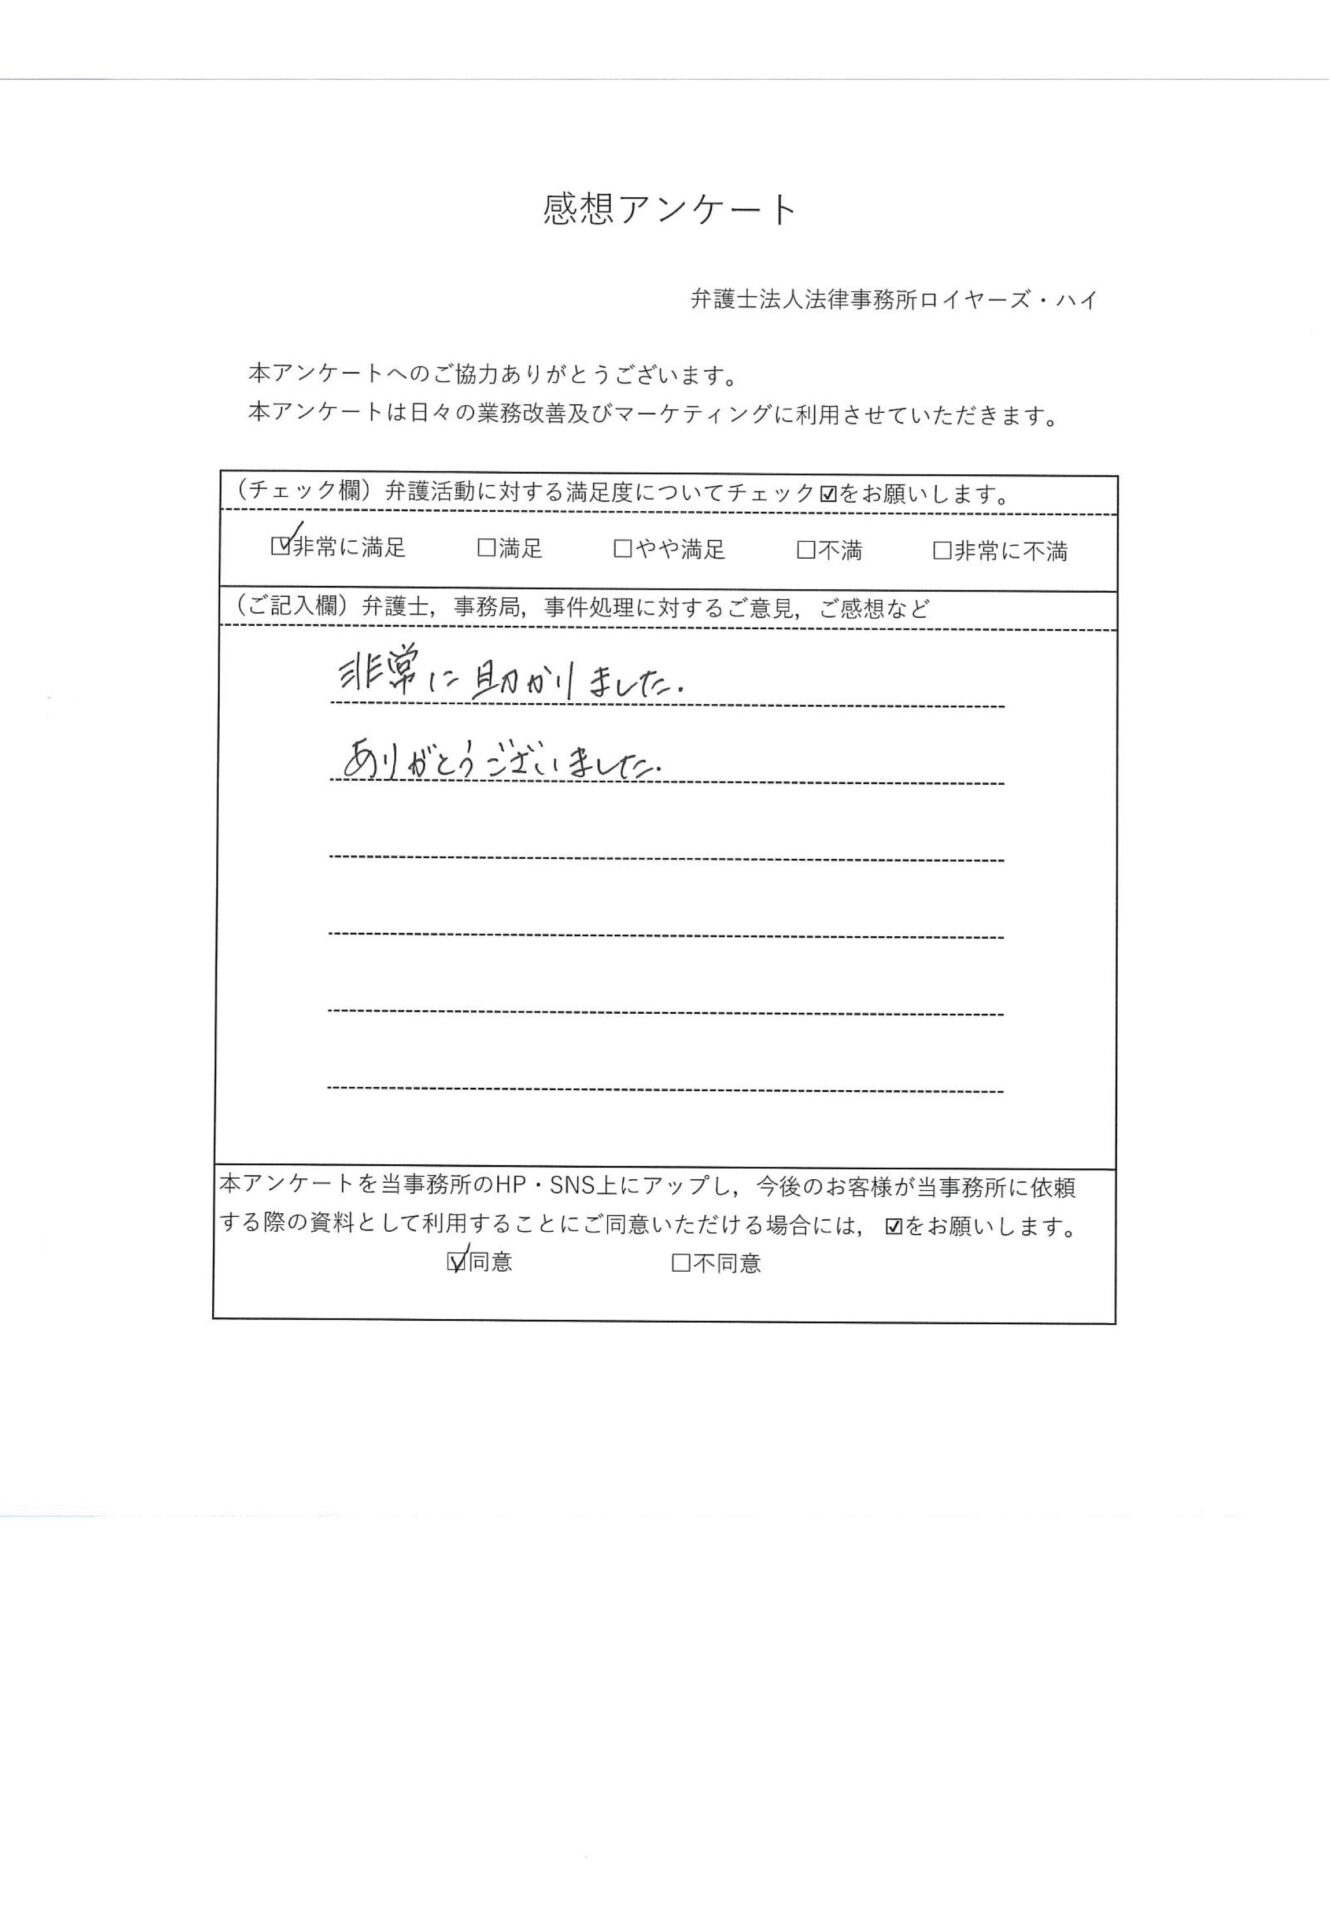 感想アンケート
弁護士法人法律事務所ロイヤーズ・ハイ
本アンケートへのご協力ありがとうございます。
本アンケートは日々の業務改善及びマーケティングに利用させていただきます。
（チェック欄）弁護活動に対する満足度についてチェック☑をお願いします。
☑非常に満足 □満足 □やや満足 □不満 □非常に不満
（ご記入欄）弁護士，事務局，事件処理に対するご意見，ご感想など
非常に助かりました.
ありがとうございました.
本アンケートを当事務所のHP・SNS上にアップし，今後のお客様が当事務所に依頼
する際の資料として利用することにご同意いただける場合には，☑をお願いします。
☑同意 □不同意